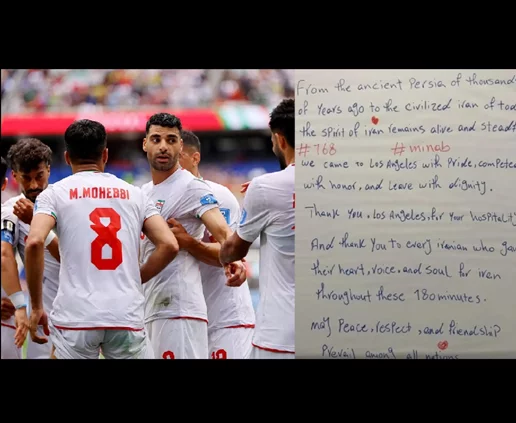 M.MOHEBBI
8
From the ancient Persia of thousand
of Years ago to the civilized iran of tod
the spirit of iran remains alive and steadf
#168 #minab
we came to Los Angeles with Pride, competed
with honor, and Leave with dignity.
Thank you, Los Angeles, for Your hospitality
And thank You to every iranian who ga
their heart, voice, and soul for iran
throughout these 180minutes.
may Peace, respect, and Friendship
Prevail among all nations